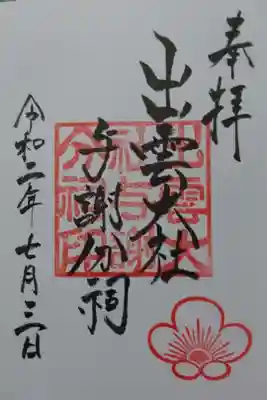 奉拝
出雲大社
与謝分祠
令和二年七月三日